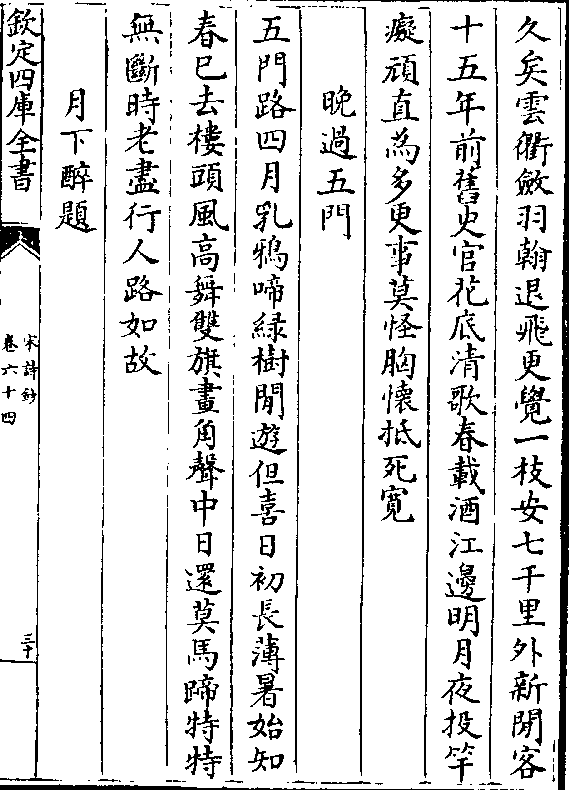 久矣雲衢斂羽翰退飛更覺一枝安七千里外新閒客
十五年前舊史官花底清歌春載酒江邊明月夜投竿
癡頑直為多更事莫怪胸懷抵死寛
晚過五門
五門路四月乳鴉啼緑樹閒遊但喜日初長薄暑始知
春已去樓頭風高舞雙旗畫角聲中日還莫馬蹄特特
無斷時老盡行人路如故
月下醉題
欽定四庫全書
宋詩鈔
卷六十四
三十